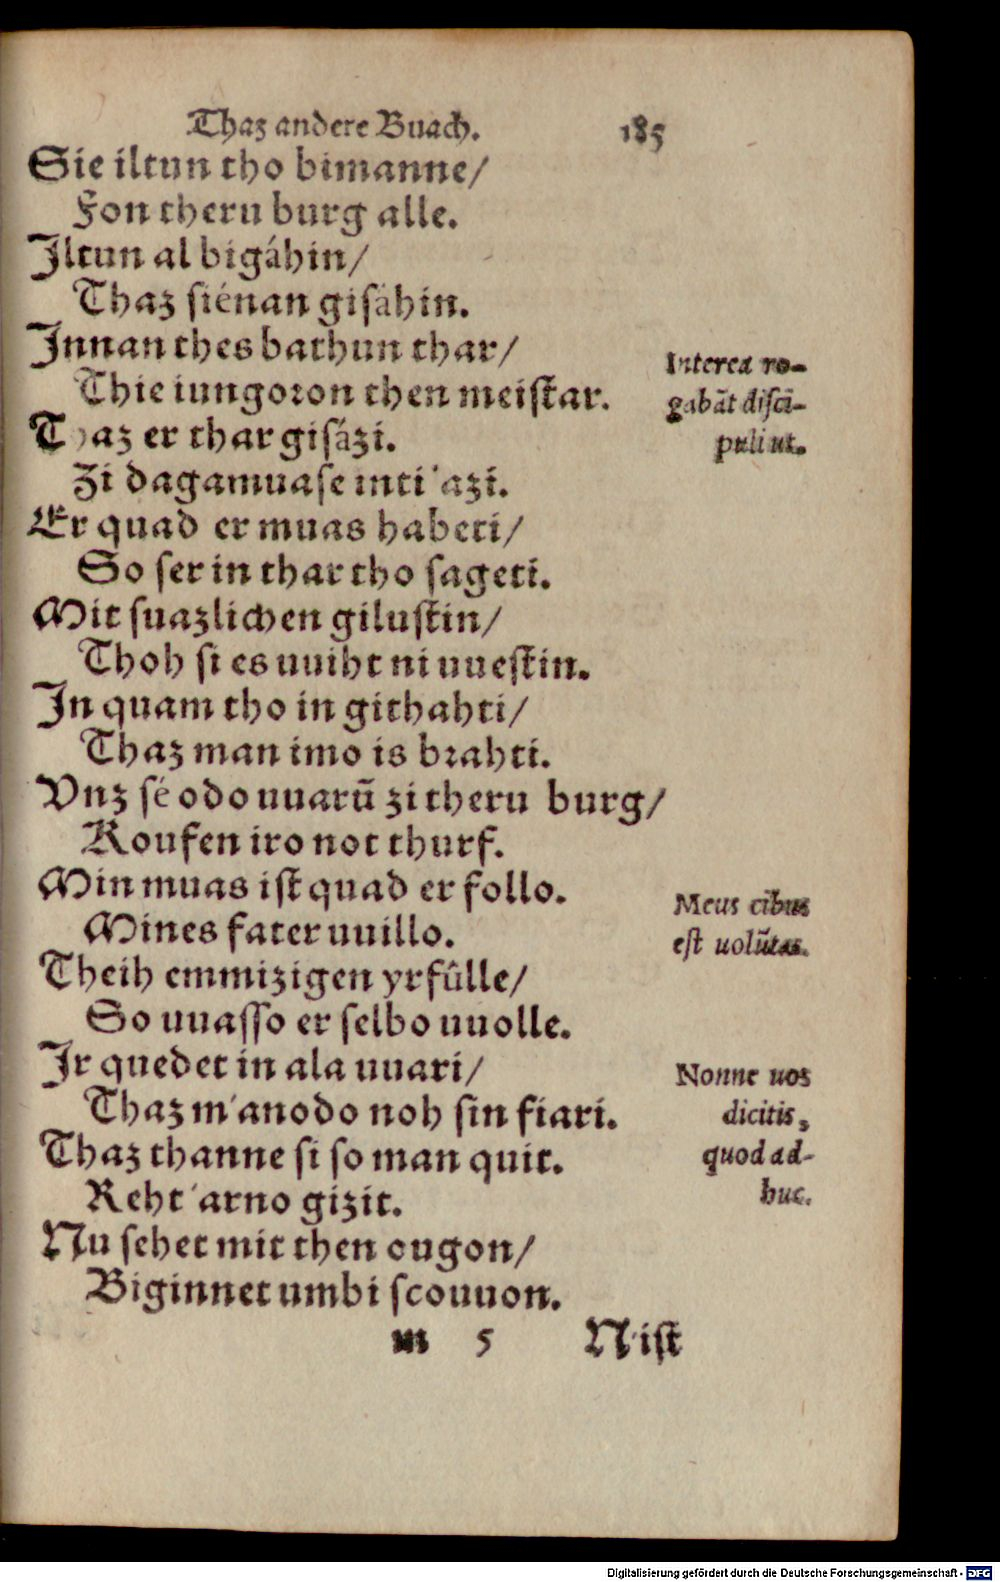 Thaz andere Buach. 185
Sie iltun tho bimanne/
Fon theru burg alle.
Jltun al bigáhin/
Thaz siénan gisâhin.
Jnnan thes bathun thar/
Thie iungoron then meistar.
Interea ro-
gabāt disci-
puli ut.
Thaz er thar gisâzi.
Zi dagamuase inti 'azi.
Er quad er muas habeti/
So ser in thar tho sageti.
Mit suazlichen gilustin/
Thoh si es uuiht ni uuestin.
Jn quam tho in githahti/
Thaz man imo is brahti.
Vnz sé odo uuarū zi theru burg/
Koufen iro not thurf.
Min muas ist quad er follo.
Mines fater uuillo.
Meus cibus
est uolūtas.
Theih emmizigen yrfûlle/
So uuasso er selbo uuolle.
Jr quedet in ala uuari/
Thaz m'anodo noh sin fiari.
Thaz thanne si so man quit.
Reht 'arno gizit.
Nonne uos
dicitis,
quod ad-
huc.
Nu sehet mit then ougon/
Biginnet umbi scouuon.
m 5 N'ist
Digitalisierung gefördert durch die Deutsche Forschungsgemeinschaft - DFG